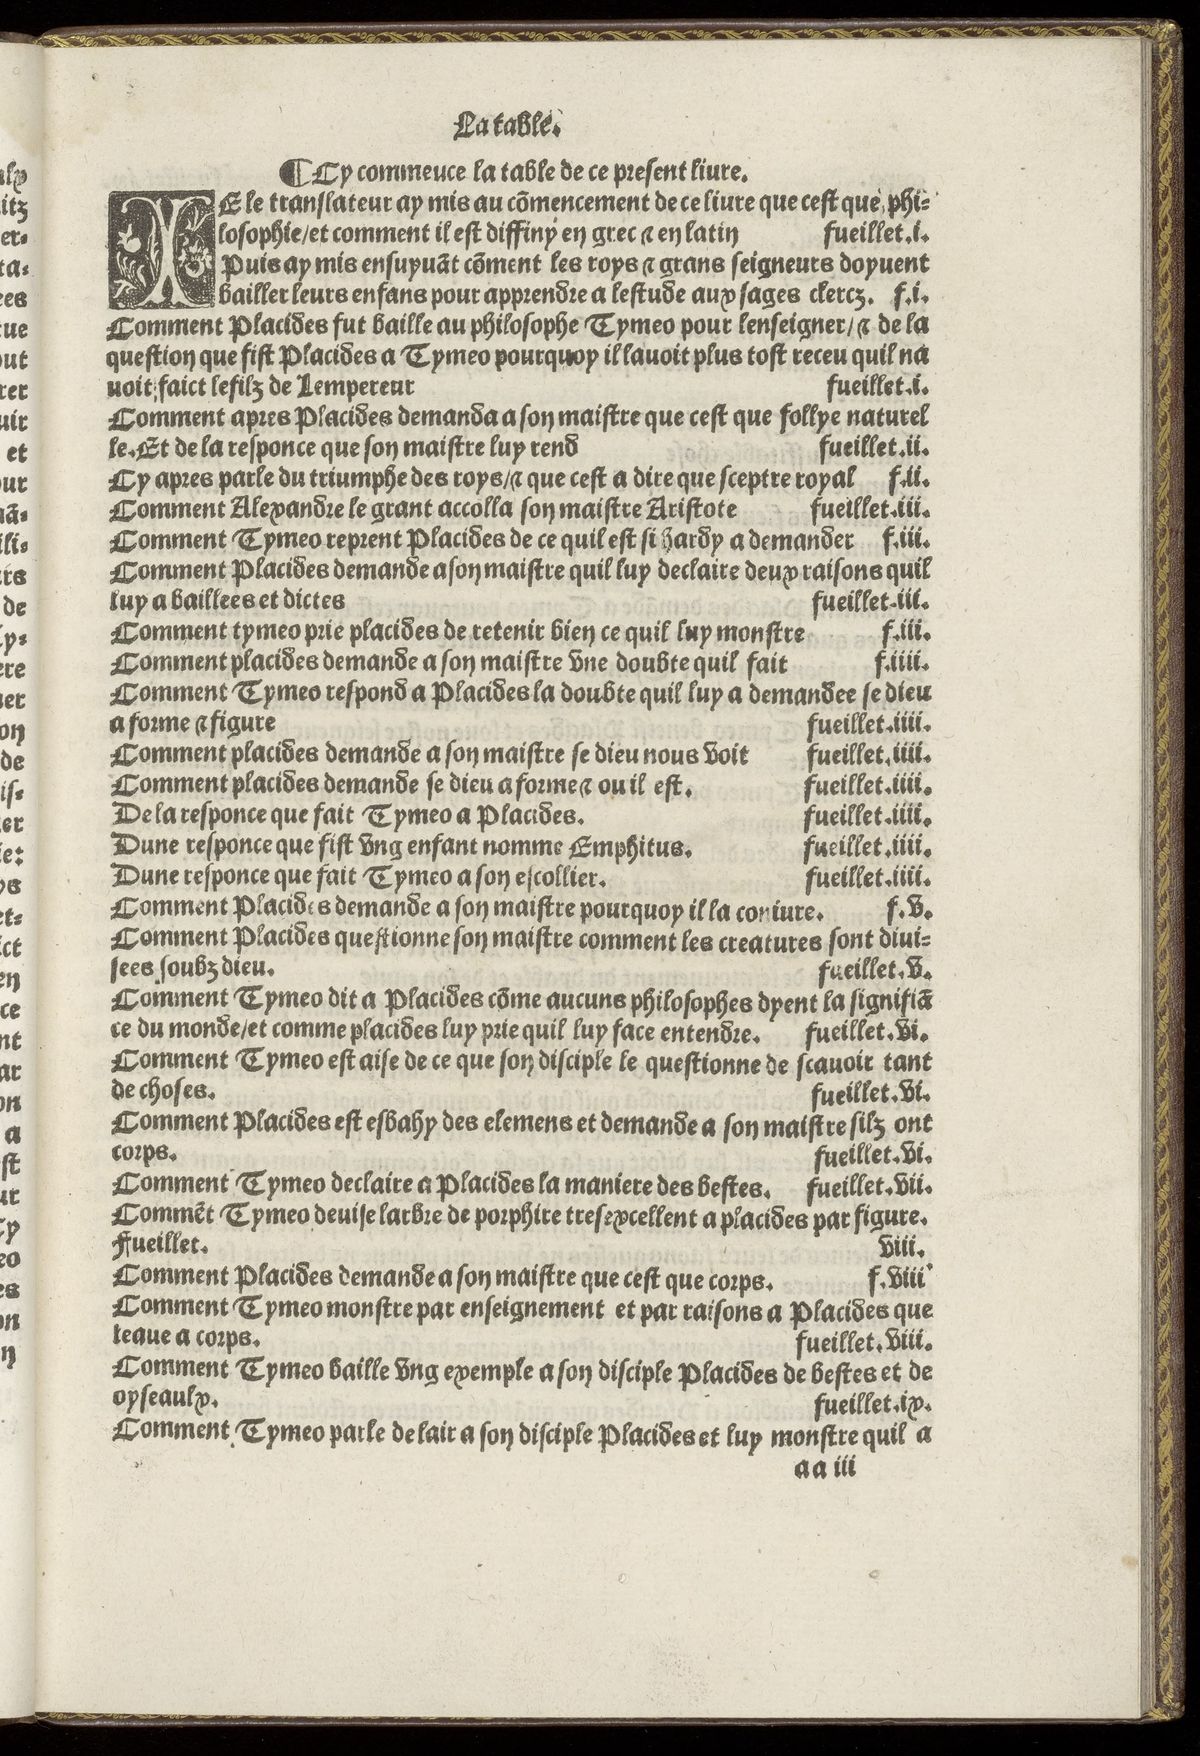 La table.
¶ Cy commeuce la table de ce present liure.
IE le translateur ay mis au cõmencement de ce liure que cest que phi-
losophie/et comment il est diffiny en grec ⁊ en latin fueillet.i.
Puis ay mis ensuyuãt cõment les roys ⁊ grans seigneurs doyuent
bailler leurs enfans pour apprendre a lestude aux sages clercz. f.i.
Comment Placides fut baille au philosophe Tymeo pour lenseigner/⁊ de la
question que fist Placides a Tymeo pourquoy il lauoit plus tost receu quil na
uoit faict le filz de Lempereur fueillet.i.
Comment apres Placides demanda a son maistre que cest que follye naturel
le. Et de la responce que son maistre luy rend fueillet.ii.
Cy apres parle du triumphe des roys/⁊ que cest a dire que sceptre royal f.ii.
Comment Alexandre le grant accolla son maistre Aristote fueillet.iii.
Comment Tymeo reprent Placides de ce quil est si hardy a demander f.iii.
Comment Placides demande a son maistre quil luy declaire deux raisons quil
luy a baillees et dictes fueillet.iii.
Comment tymeo prie placides de retenir bien ce quil luy monstre f.iii.
Comment placides demande a son maistre vne doubte quil fait f.iiii.
Comment Tymeo respond a Placides la doubte quil luy a demandee se dieu
a forme ⁊ figure fueillet.iiii.
Comment placides demande a son maistre se dieu nous voit fueillet.iiii.
Comment placides demande se dieu a forme ⁊ ou il est. fueillet.iiii.
De la responce que fait Tymeo a Placides. fueillet.iiii.
Dune responce que fist vng enfant nomme Emphitus. fueillet.iiii.
Dune responce que fait Tymeo a son escollier. fueillet.iiii.
Comment Placides demande a son maistre pourquoy il la coniure. f.v.
Comment Placides questionne son maistre comment les creatures sont diui-
sees soubz dieu. fueillet.v.
Comment Tymeo dit a Placides cõme aucuns philosophes dyent la signifiã
ce du monde/et comme placides luy prie quil luy face entendre. fueillet.vi.
Comment Tymeo est aise de ce que son disciple le questionne de scauoir tant
de choses. fueillet.vi.
Comment Placides est esbahy des elemens et demande a son maistre silz ont
corps. fueillet.vi.
Comment Tymeo declaire a Placides la maniere des bestes. fueillet.vii.
Commẽt Tymeo deuise larbre de porphire tresexcellent a placides par figure.
Fueillet. viii.
Comment Placides demande a son maistre que cest que corps. f.viii
Comment Tymeo monstre par enseignement et par raisons a Placides que
leaue a corps. fueillet.viii.
Comment Tymeo baille vng exemple a son disciple Placides de bestes et de
oyseaulx. fueillet.ix.
Comment Tymeo parle de lair a son disciple Placides et luy monstre quil a
aa iii